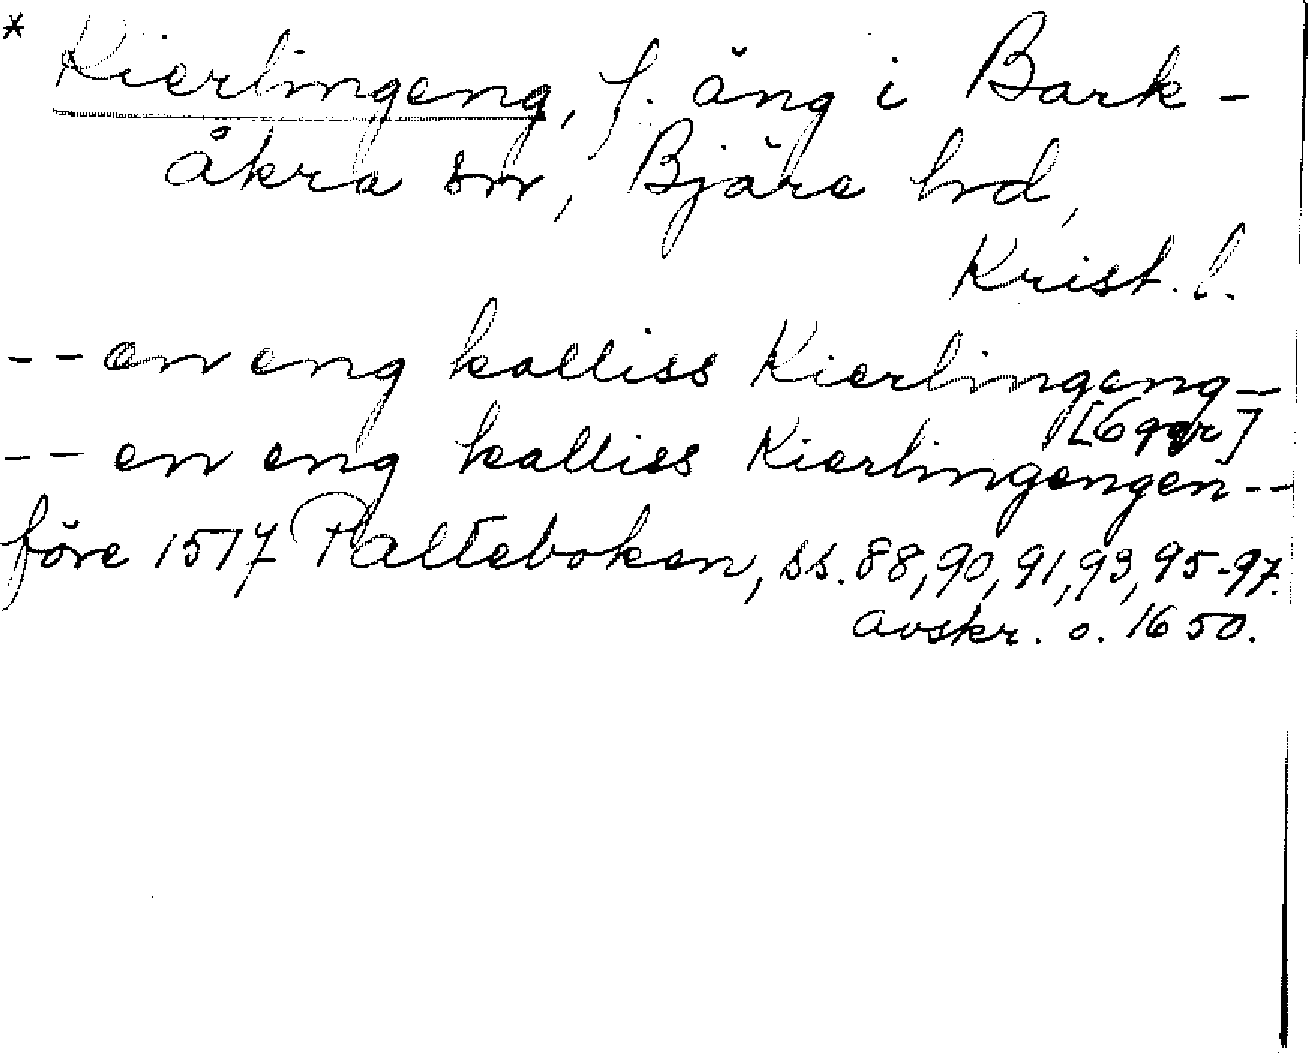 * Kierlingeng, f. äng i Bark-
åkra sn, Bjäre hd,
Krist. l.
-- en eng kalliss Kierlingeng--
[6 ggr]
-- en eng kalliss Kierlingengen--
före 1517 Palteboken, ss. 88, 90, 91, 93, 95-97.
avskr. o. 1650.